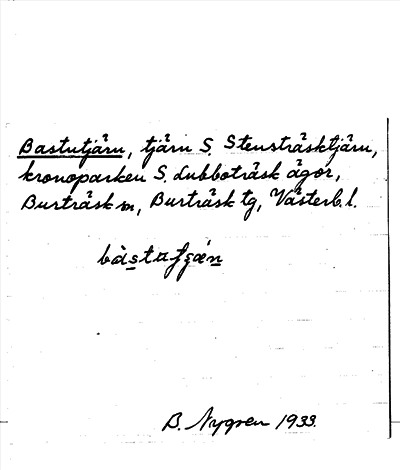 Bastutjärn, tjärn S. Stensträsktjärn,
kronoparken S. Lubboträsk ägor,
Burträsk sn, Burträsk tg, Västerb. l.
bàstaʃʒǽn
B. Nygren 1933.